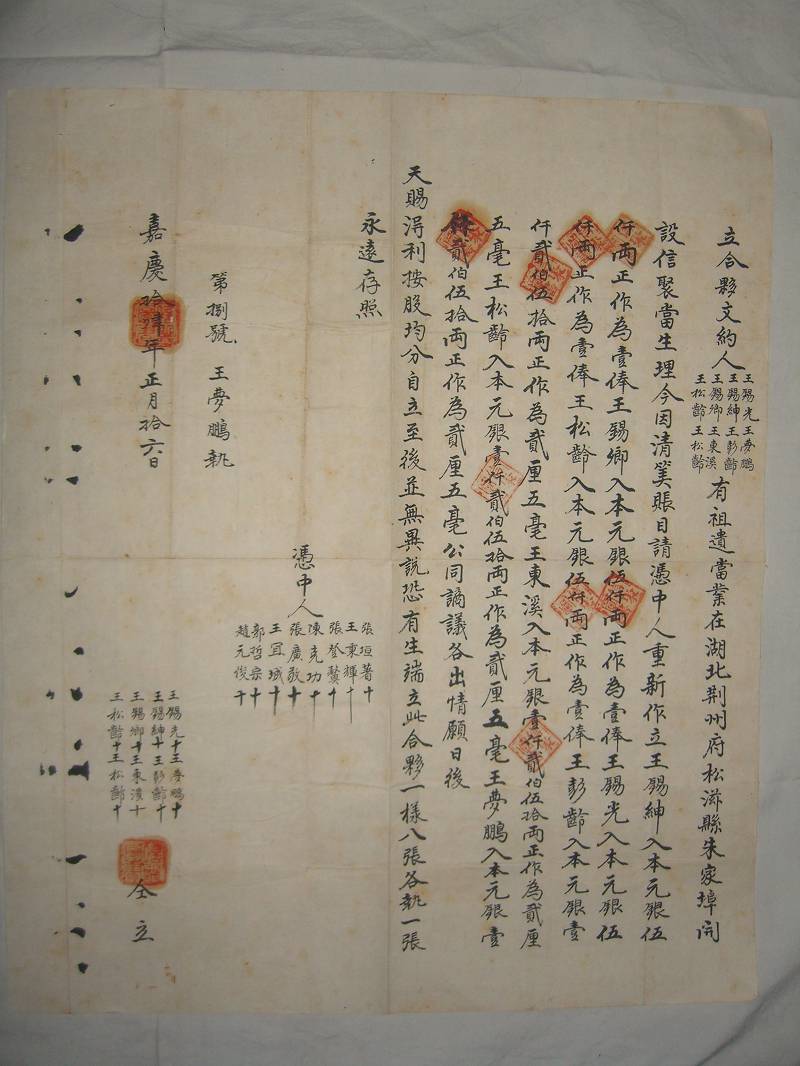 立合夥文約人
王錫光王夢鵬
王錫紳王彭齡
王錫卿王東溪
王松齡王松齡
有祖遺當業在湖北荆州府松滋縣朱家埠開
設信聚當生理今因清筭賬目請憑中人重新作立王錫紳入本元銀伍
仟両正作為壹俸王錫卿入本元銀伍仟両正作為壹俸王錫光入本元銀伍
仟両正作為壹俸王松齡入本元銀伍仟両正作為壹俸王彭齡入本元銀壹
仟貳伯伍拾両正作為貳厘五毫王東溪入本元銀壹仟貳伯伍拾両正作為貳厘
五毫王松齡入本元銀壹仟貳伯伍拾両正作為貳厘五毫王夢鵬入本元銀壹
仟貳伯伍拾両正作為貳厘五毫公同謪議各出情願日後
天賜淂利按股均分自立至後並無異説恐有生端立此合夥一樣八張各執一張
永遠存照
憑中人
張垣著十
王東輝十
張登鰲十
陳克功十
張廣敬十
王宜城十
郭哲宗十
趙元俊十
第捌號 王夢鵬執
嘉慶拾肆年正月拾六日
王錫光十王夢鵬十
王錫紳十王彭齡十
王錫卿十王東溪十
王松齡十王松齡十
仝立